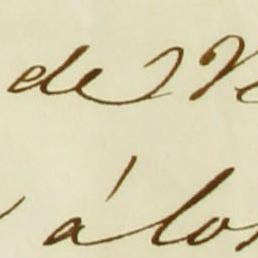 de
á los